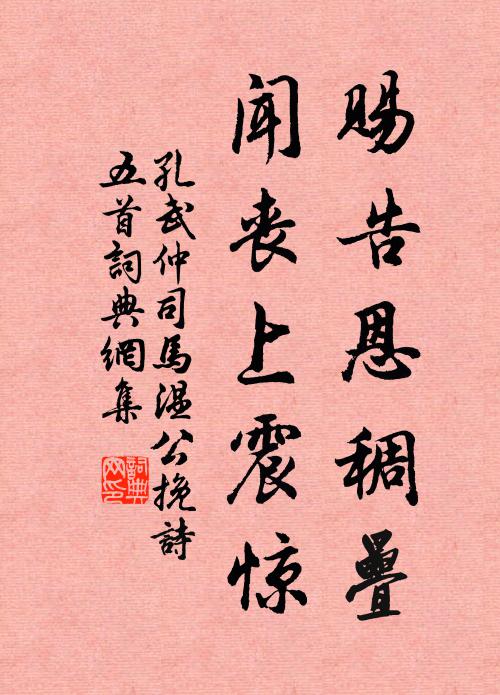 賜告恩稠疊
聞喪上震惊
孔武仲司馬溫公挽詩
五首詞典網集
詞典网印